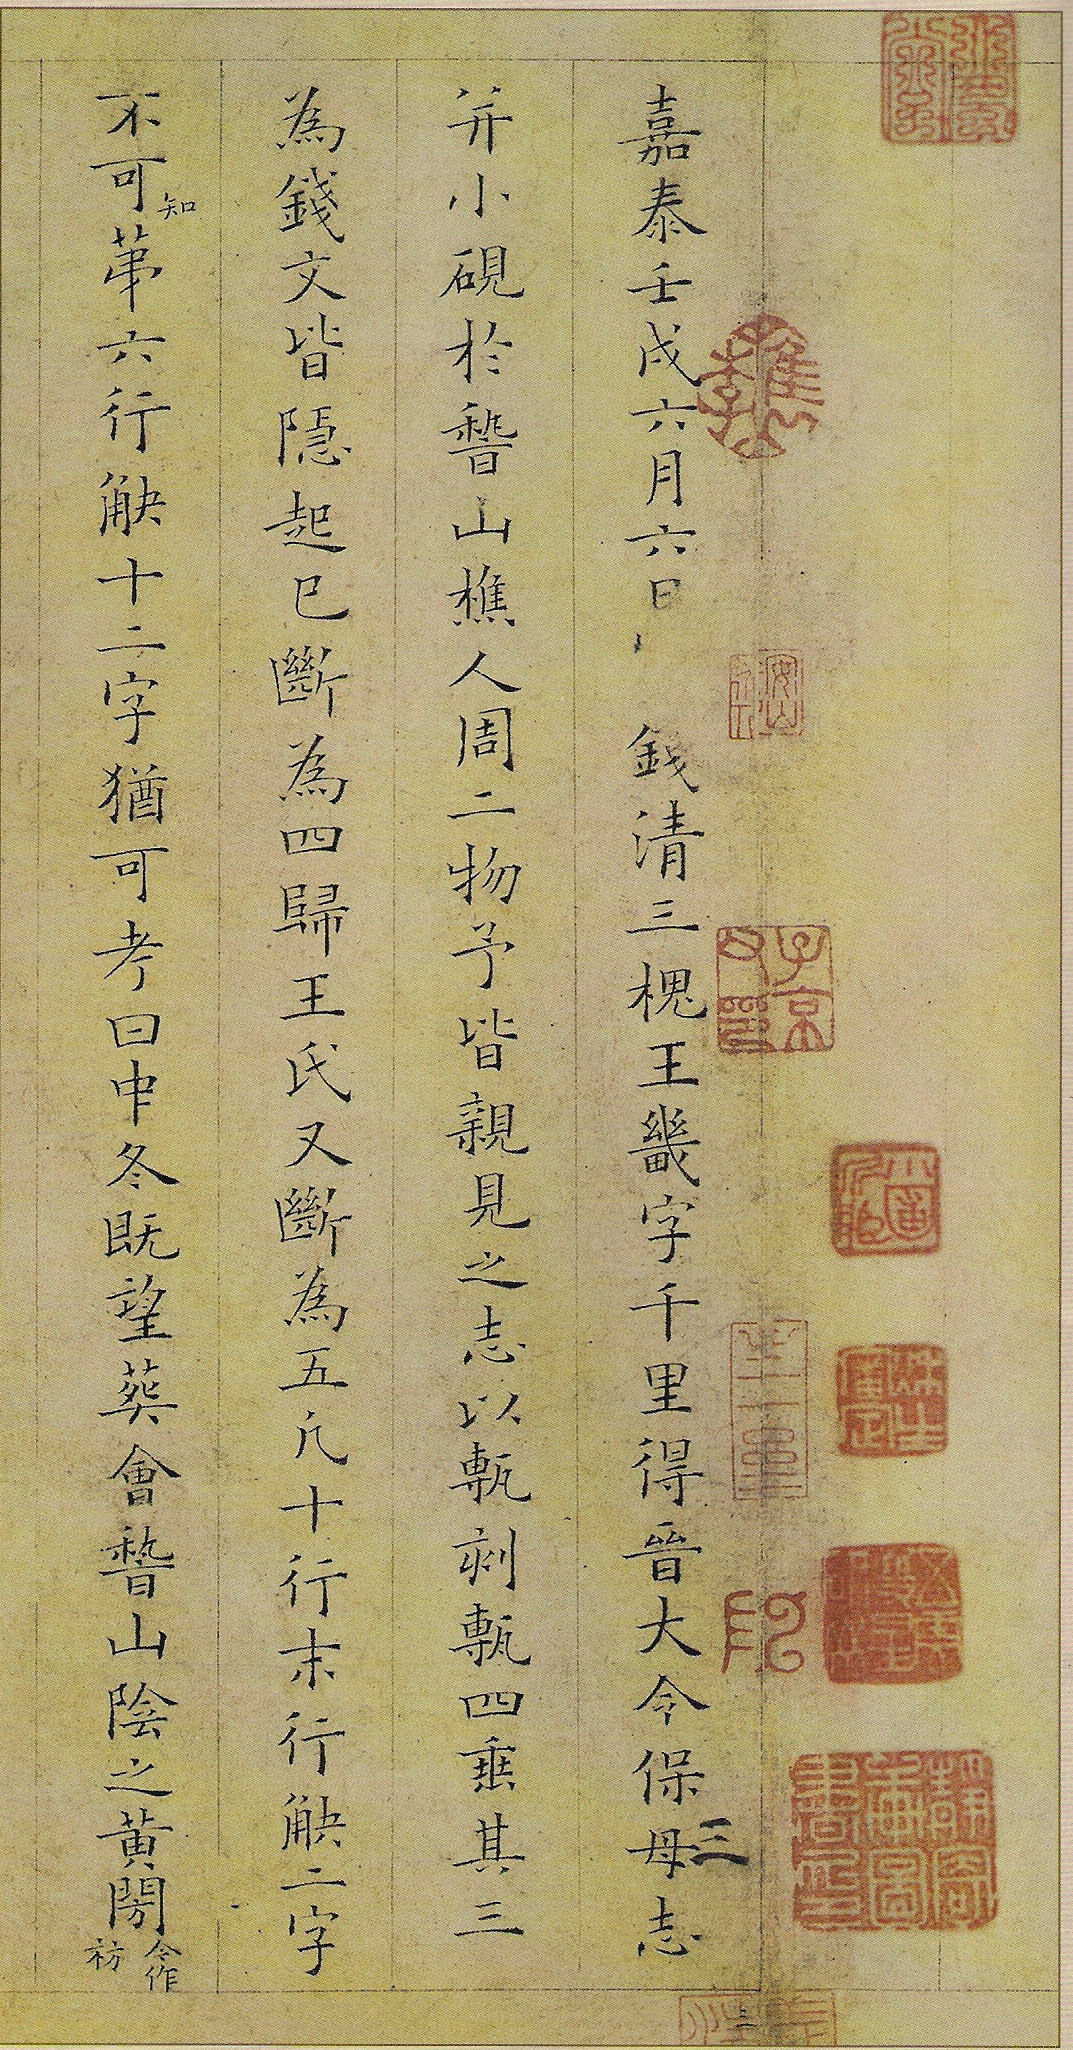 嘉泰壬戌六月六日錢清三槐王畿字千里得晉大令保母志
三
并小硯於稽山樵人周二物予皆親見之志以甎刻甎四垂其三
為錢文皆隱起已斷為四歸王氏又斷為五凡十行末行缺二字
不可知第六行缺十二字猶可考曰中冬既望葬會稽山陰之黃閍
今作祊
子京父印